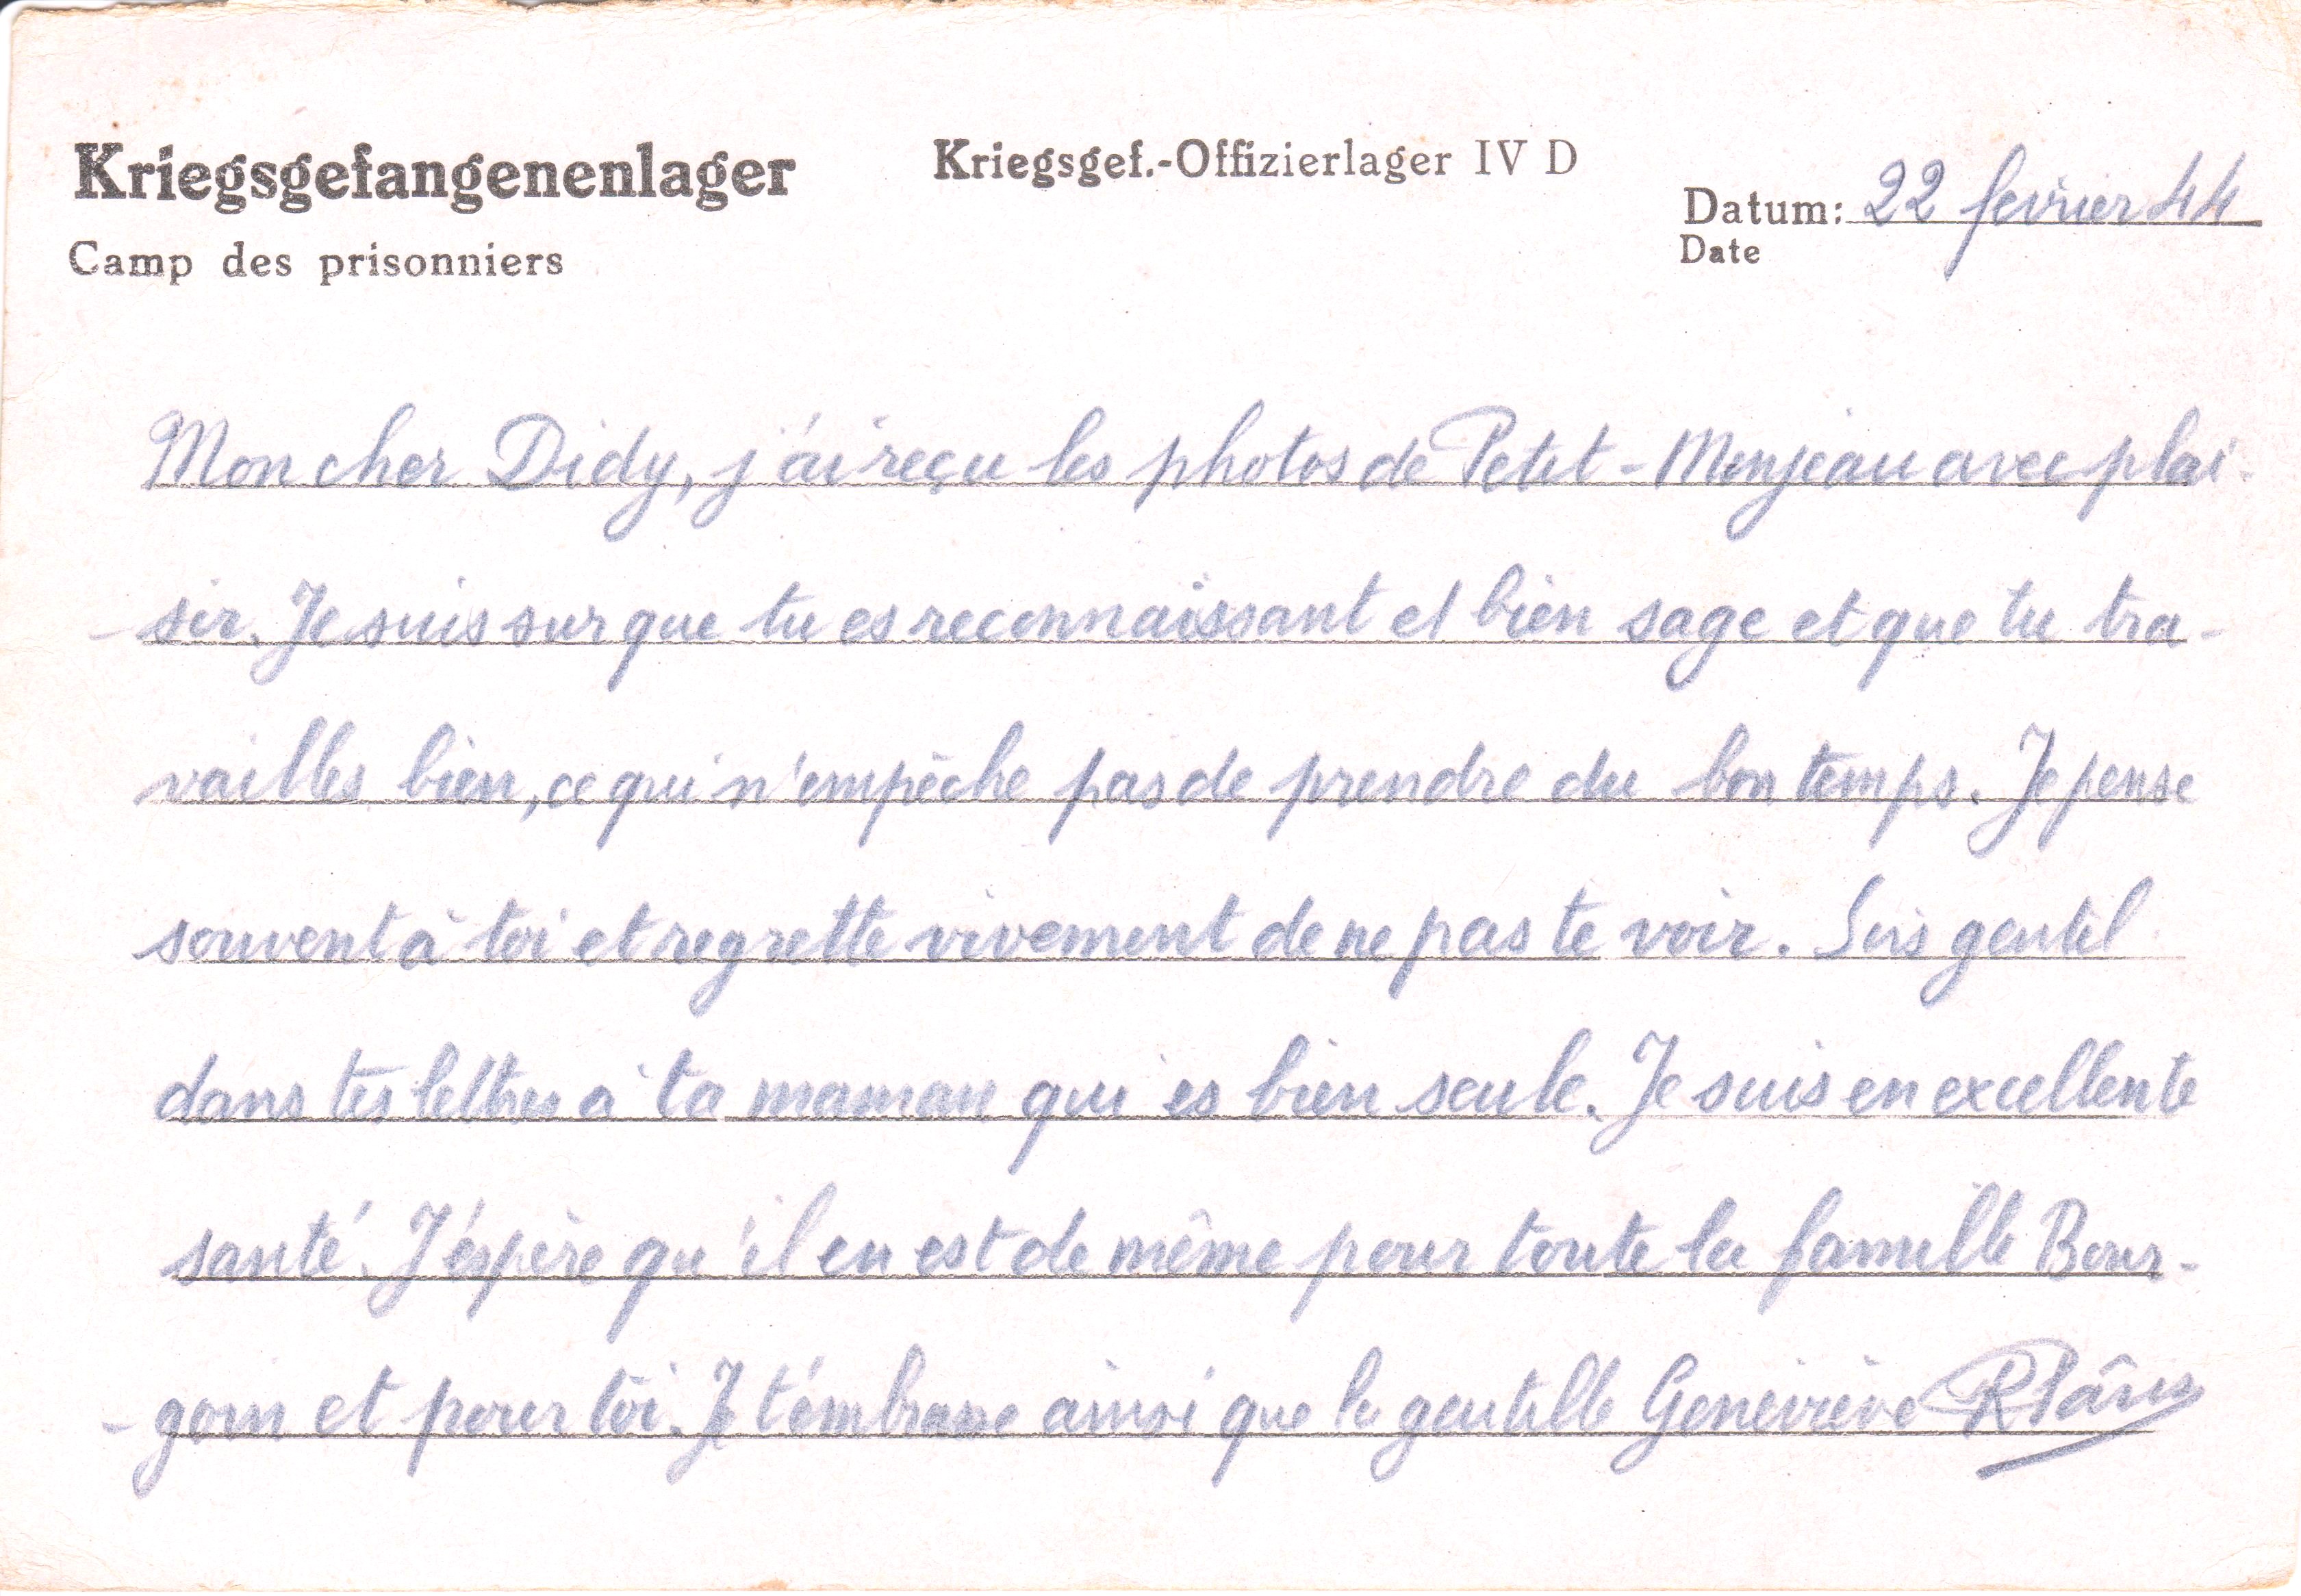 Kriegsgefangenenlager
Camp des prisonniers
Kriegsgef.-Offizierlager IV D
Datum: 22 février 44
Date
Mon cher Didy, j'ai reçu les photos de Petit-Monjeau avec plai-
-sir. Je suis sur que tu es reconnaissant et bien sage et que tu tra-
vailles bien, ce qui n'empêche pas de prendre du bon temps. Je pense
souvent à toi et regrette vivement de ne pas te voir. Sois gentil
dans tes lettres à ta maman qui es bien seule. Je suis en excellente
santé. J'éspère qu'il en est de même pour toute la famille Bour-
-goin et pour toi. Je t'embrasse ainsi que la gentille Geneviève